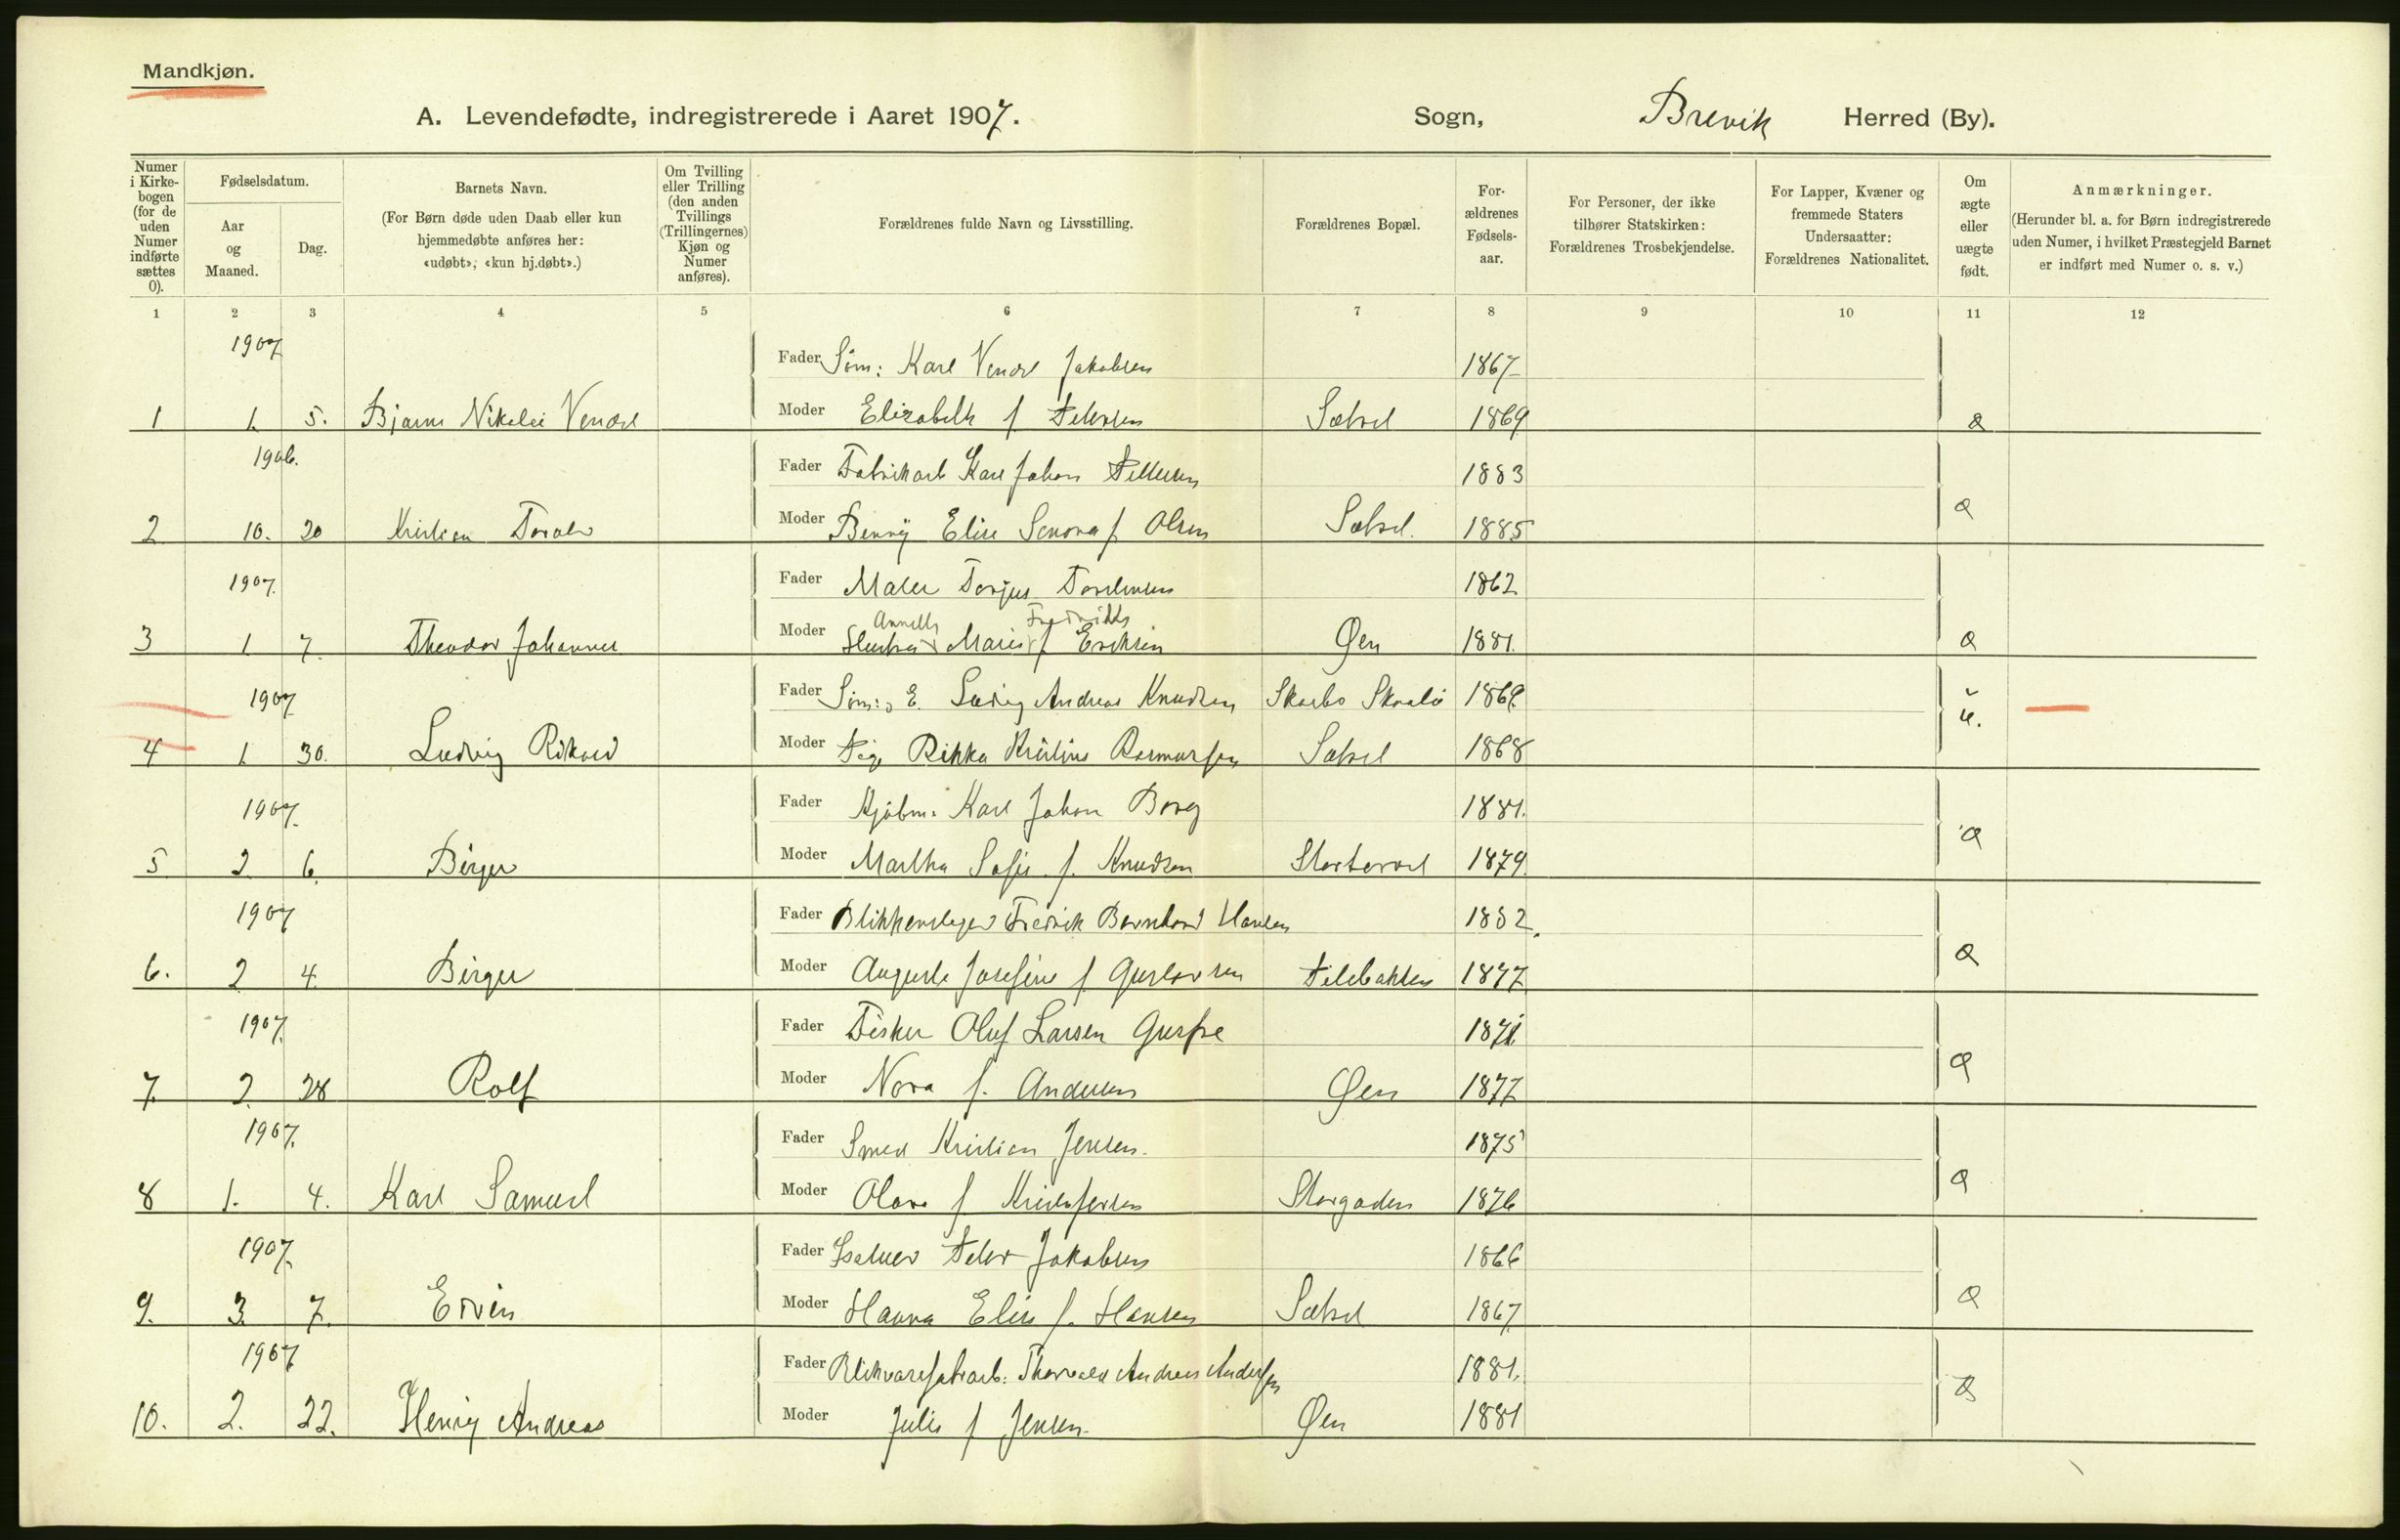 Mandkjøn.
A. Levendefødte, indregistrerede i Aaret 1907. Sogn, Brevik Herred (By).
Numer i Kirkebogen (for de uden Numer indførte sættes 0).
Fødselsdatum.
Aar og Maaned.
Dag.
Barnets Navn.
(For Børn døde uden Daab eller kun hjemmedøbte anføres her: «udøbt», «kun hj.døbt».)
Om Tvilling eller Trilling (den anden Tvillings (Trillingernes) Kjøn og Numer anføres).
Forældrenes fulde Navn og Livsstilling.
Forældrenes Bopæl.
Forældrenes Fødselsaar.
For Personer, der ikke tilhører Statskirken: Forældrenes Trosbekjendelse.
For Lapper, Kvæner og fremmede Staters Undersaatter: Forældrenes Nationalitet.
Om ægte eller uægte født.
Anmærkninger.
(Herunder bl. a. for Børn indregistrerede uden Numer, i hvilket Præstegjeld Barnet er indført med Numer o. s. v.)
1 2 3 4 5 6 7 8 9 10 11 12
1907 Fader Søm: Karl Jakobsen 1867
1 1. 5. Nikolai Moder Elisabeth f Petersen 1869
1906. Fader Karl Johan Pettersen 1883
2 10. 20 Kristian Toralv Moder Benny Elise f. Olsen 1885
1907. Fader Maler Torjus 1862
Fredrikke
3 1 7. Theodor Johannes Moder Marie f Eriksen Øen 1881. a
1907 Fader Søm: E. Ludvig Andreas Knudsen 1869 u.
4 1. 30. Ludvig Moder Rikka Kristine Rasmussen 1868
1907. Fader Kjøbm. Karl Johan Borg 1881. a
5 2 6. Birger Moder Martha Sofie f. Knudsen 1879
1907 Fader Blikkenslager Fredrik Bernhard Hansen 1882. a
6. 2 4. Birger Moder Josefine f Gustavsen 1877
1907. Fader Fisker Oluf Larsen 1871 a
7. 2. 28 Rolf Moder Nora f. Andersen Øen 1877
1907. Fader Smed Kristian Jensen. 1875
8 1. 4. Karl Samuel Moder Olava f Kristofersen Storgaden 1876 a
1907. Fader Peder Jakobsen 1866
9. 3. 7. Ervin Moder Hanna Elise f. Hansen 1867 a
1907 Fader Thorvald Andreas Andersen 1881.
10. 2. 22. Henry Andreas Moder Julie f Jensen. Øen 1881